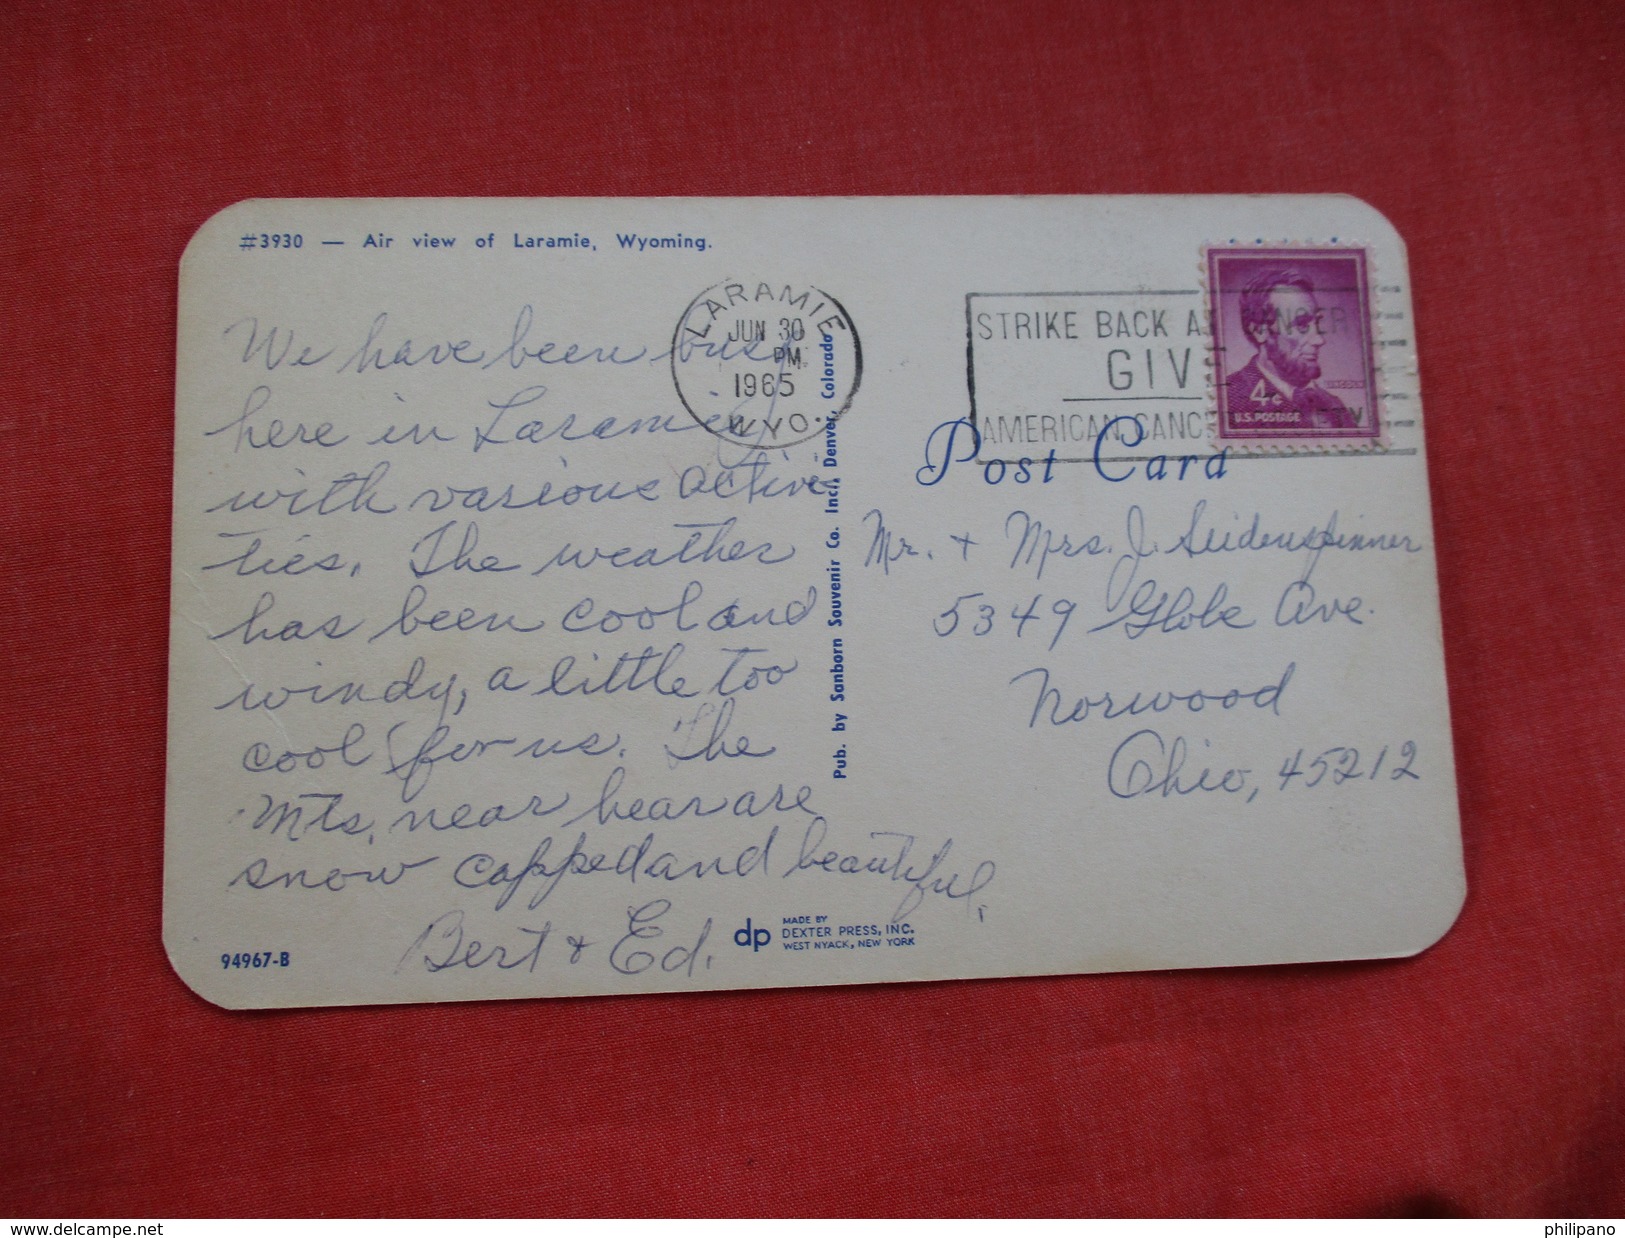 #3930 — Air view of Laramie, Wyoming.
We have been busy
here in Laramie
with various activi-
ties. The weather
has been cool and
windy, a little too
cool for us. The
Mts. near hear are
snow capped and beautiful.
Bert & Ed.
94967-B
dp
MADE BY
DEXTER PRESS, INC.
WEST NYACK, NEW YORK
Pub. by Sanborn Souvenir Co. Inc., Denver, Colorado
LARAMIE
JUN 30
PM
1965
WYO.
STRIKE BACK AT CANCER
GIVE
AMERICAN CANCER SOCIETY
LINCOLN
4¢
U.S. POSTAGE
Post Card
Mr. + Mrs. J. Seidenspinner
5349 Globe Ave.
Norwood
Ohio, 45212
philipano
www.delcampe.net